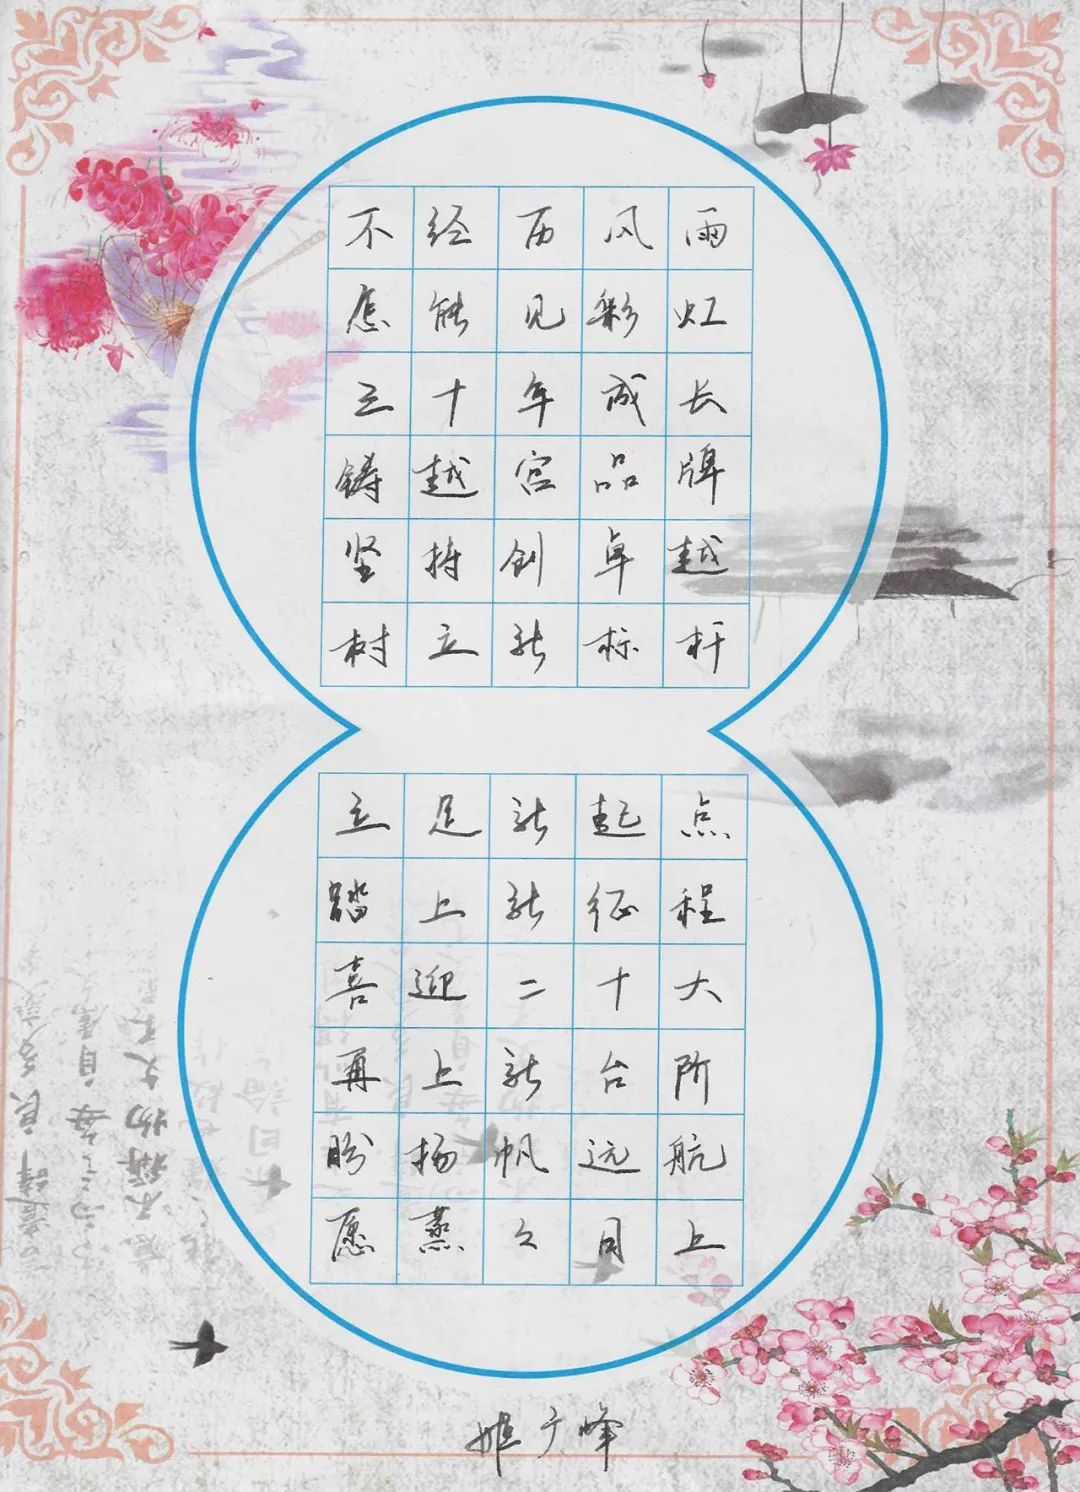 不经历风雨
怎能见彩虹
三十年成长
铸越宫品牌
坚持创卓越
树立新标杆
立足新起点
踏上新征程
喜迎二十大
再上新台阶
盼扬帆远航
愿蒸之日上
姬广峰